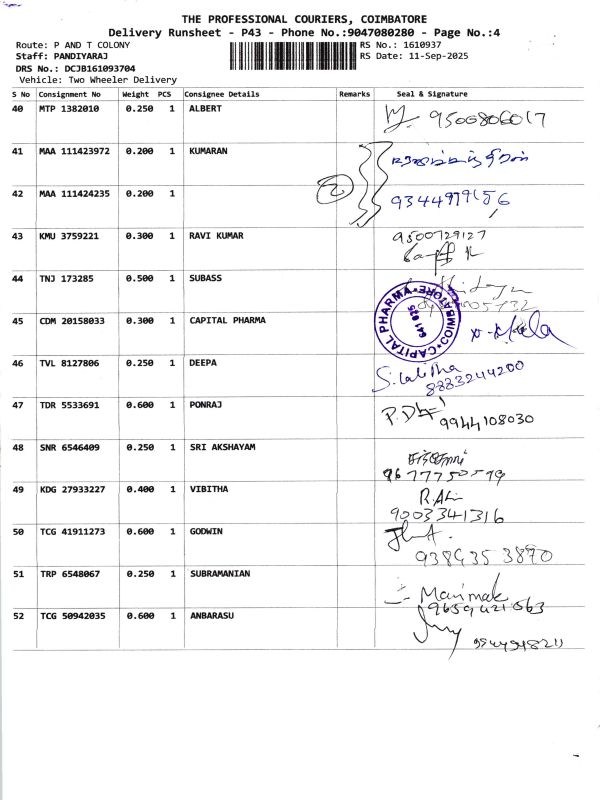 THE PROFESSIONAL COURIERS, COIMBATORE
Delivery Runsheet - P43 - Phone No.:9047080280 - Page No.:4
Route: P AND T COLONY RS No.: 1610937
Staff: PANDIYARAJ RS Date: 11-Sep-2025
DRS No.: DCJB161093704
Vehicle: Two Wheeler Delivery
S No Consignment No Weight PCS Consignee Details Remarks Seal & Signature
40 MTP 1382010 0.250 1 ALBERT 9500806017
41 MAA 111423972 0.200 1 KUMARAN
42 MAA 111424235 0.200 1 2
43 KMU 3759221 0.300 1 RAVI KUMAR 9500729127
44 TNJ 173285 0.500 1 SUBASS
45 CDM 20158033 0.300 1 CAPITAL PHARMA
CAPITAL PHARMA COIMBATORE 641 025
46 TVL 8127806 0.250 1 DEEPA S. Lalitha
8883244200
47 TDR 5533691 0.600 1 PONRAJ 9944108030
48 SNR 6546409 0.250 1 SRI AKSHAYAM
9677750579
49 KDG 27933227 0.400 1 VIBITHA
9003341316
50 TCG 41911273 0.600 1 GODWIN
51 TRP 6548067 0.250 1 SUBRAMANIAN
9659421563
52 TCG 50942035 0.600 1 ANBARASU